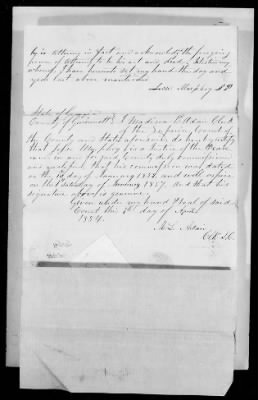 his attorney in fact and acknowledged the foregoing
power of attorney to be his act and deed. In testimony
whereof, I have hereunto set my hand the day and
year last above mentioned
Murphy J.P.
State of Georgia
County of Gwinnett } I Madison L. Adair Clerk
of the Inferior Court of
the County and State aforesaid do hereby certify
that John Murphy is a Justice of the Peace
in and for said County duly commissioned
and qualified that his commission was dated
on the day of January 1853 and will expire
on the Saturday of January 1857. And that his
signature above is genuine.
Given under my hand & seal of said
Court this day of April
1854.
M. L. Adair
Clk I.C.